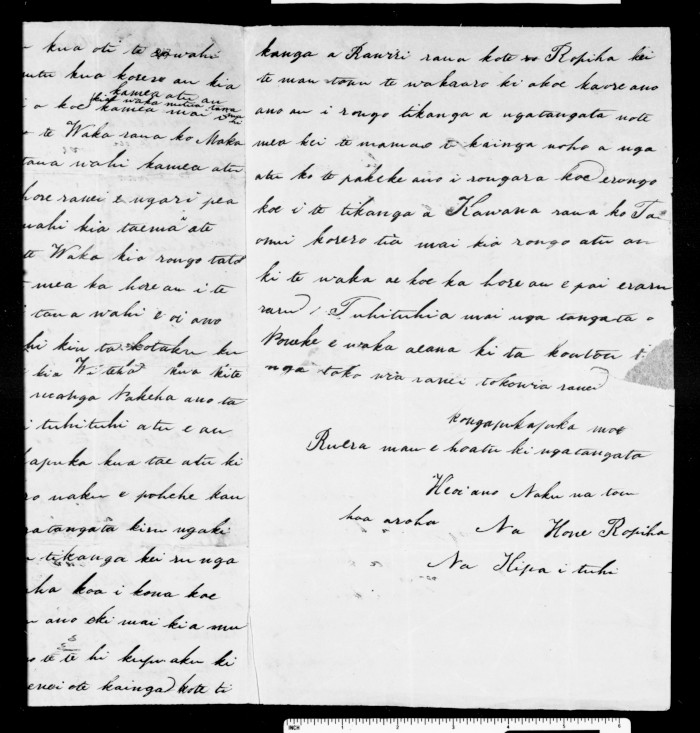 kua oti te wahi
kua korero au kia
kamea atu au
kia waka mutua tana
a koe kamea mai i
o te Waka rana ko Maka
tana wahi kamea atu
hore ranei e ngari pea
wahi kia taema ate
te Waka kia rongo
mea ka hore au i te
tana wahi e oi ano
hi kiu ta kotaku ku
kia Wi teha kua kite
manga Pakeha ano ta
i tuhituhi atu e au
apuka kua tae atu ki
ro naku e pohehe kau
ratangata kiru ngaki
tikanga kei runga
ha koa i kona koe
ano ki mai kia mu
te te hi kupu aku ki
enei ote kainga kote ti
kanga a Rawiri raua kote Ropiha kei
te mau tonu te wakaaro ki akoe kaore ano
ano au i rongo tikanga a ngatangata note
mea kei te mamao te kainga noho a nga
atu ko te pakeke ano i rongara koe erongo
koe i te tikanga a Kawana raua ko Ta
omui korero tia mai kia rongo atu au
ki te waka ae koe ka hore au e pai eraru
raru i Tuhituhia mai nga tangata o
Poneke e waka aeana ki ta koutou ti
nga toko wia ranei tokowia ranei
kongapukapuka moe
Ruera mau e hoatu ki ngatangata
Heoi ano Naku na tou
hoa aroha
Na Hone Ropiha
Na Hipa i tuhi
INCH 1 2 3 4 5 6